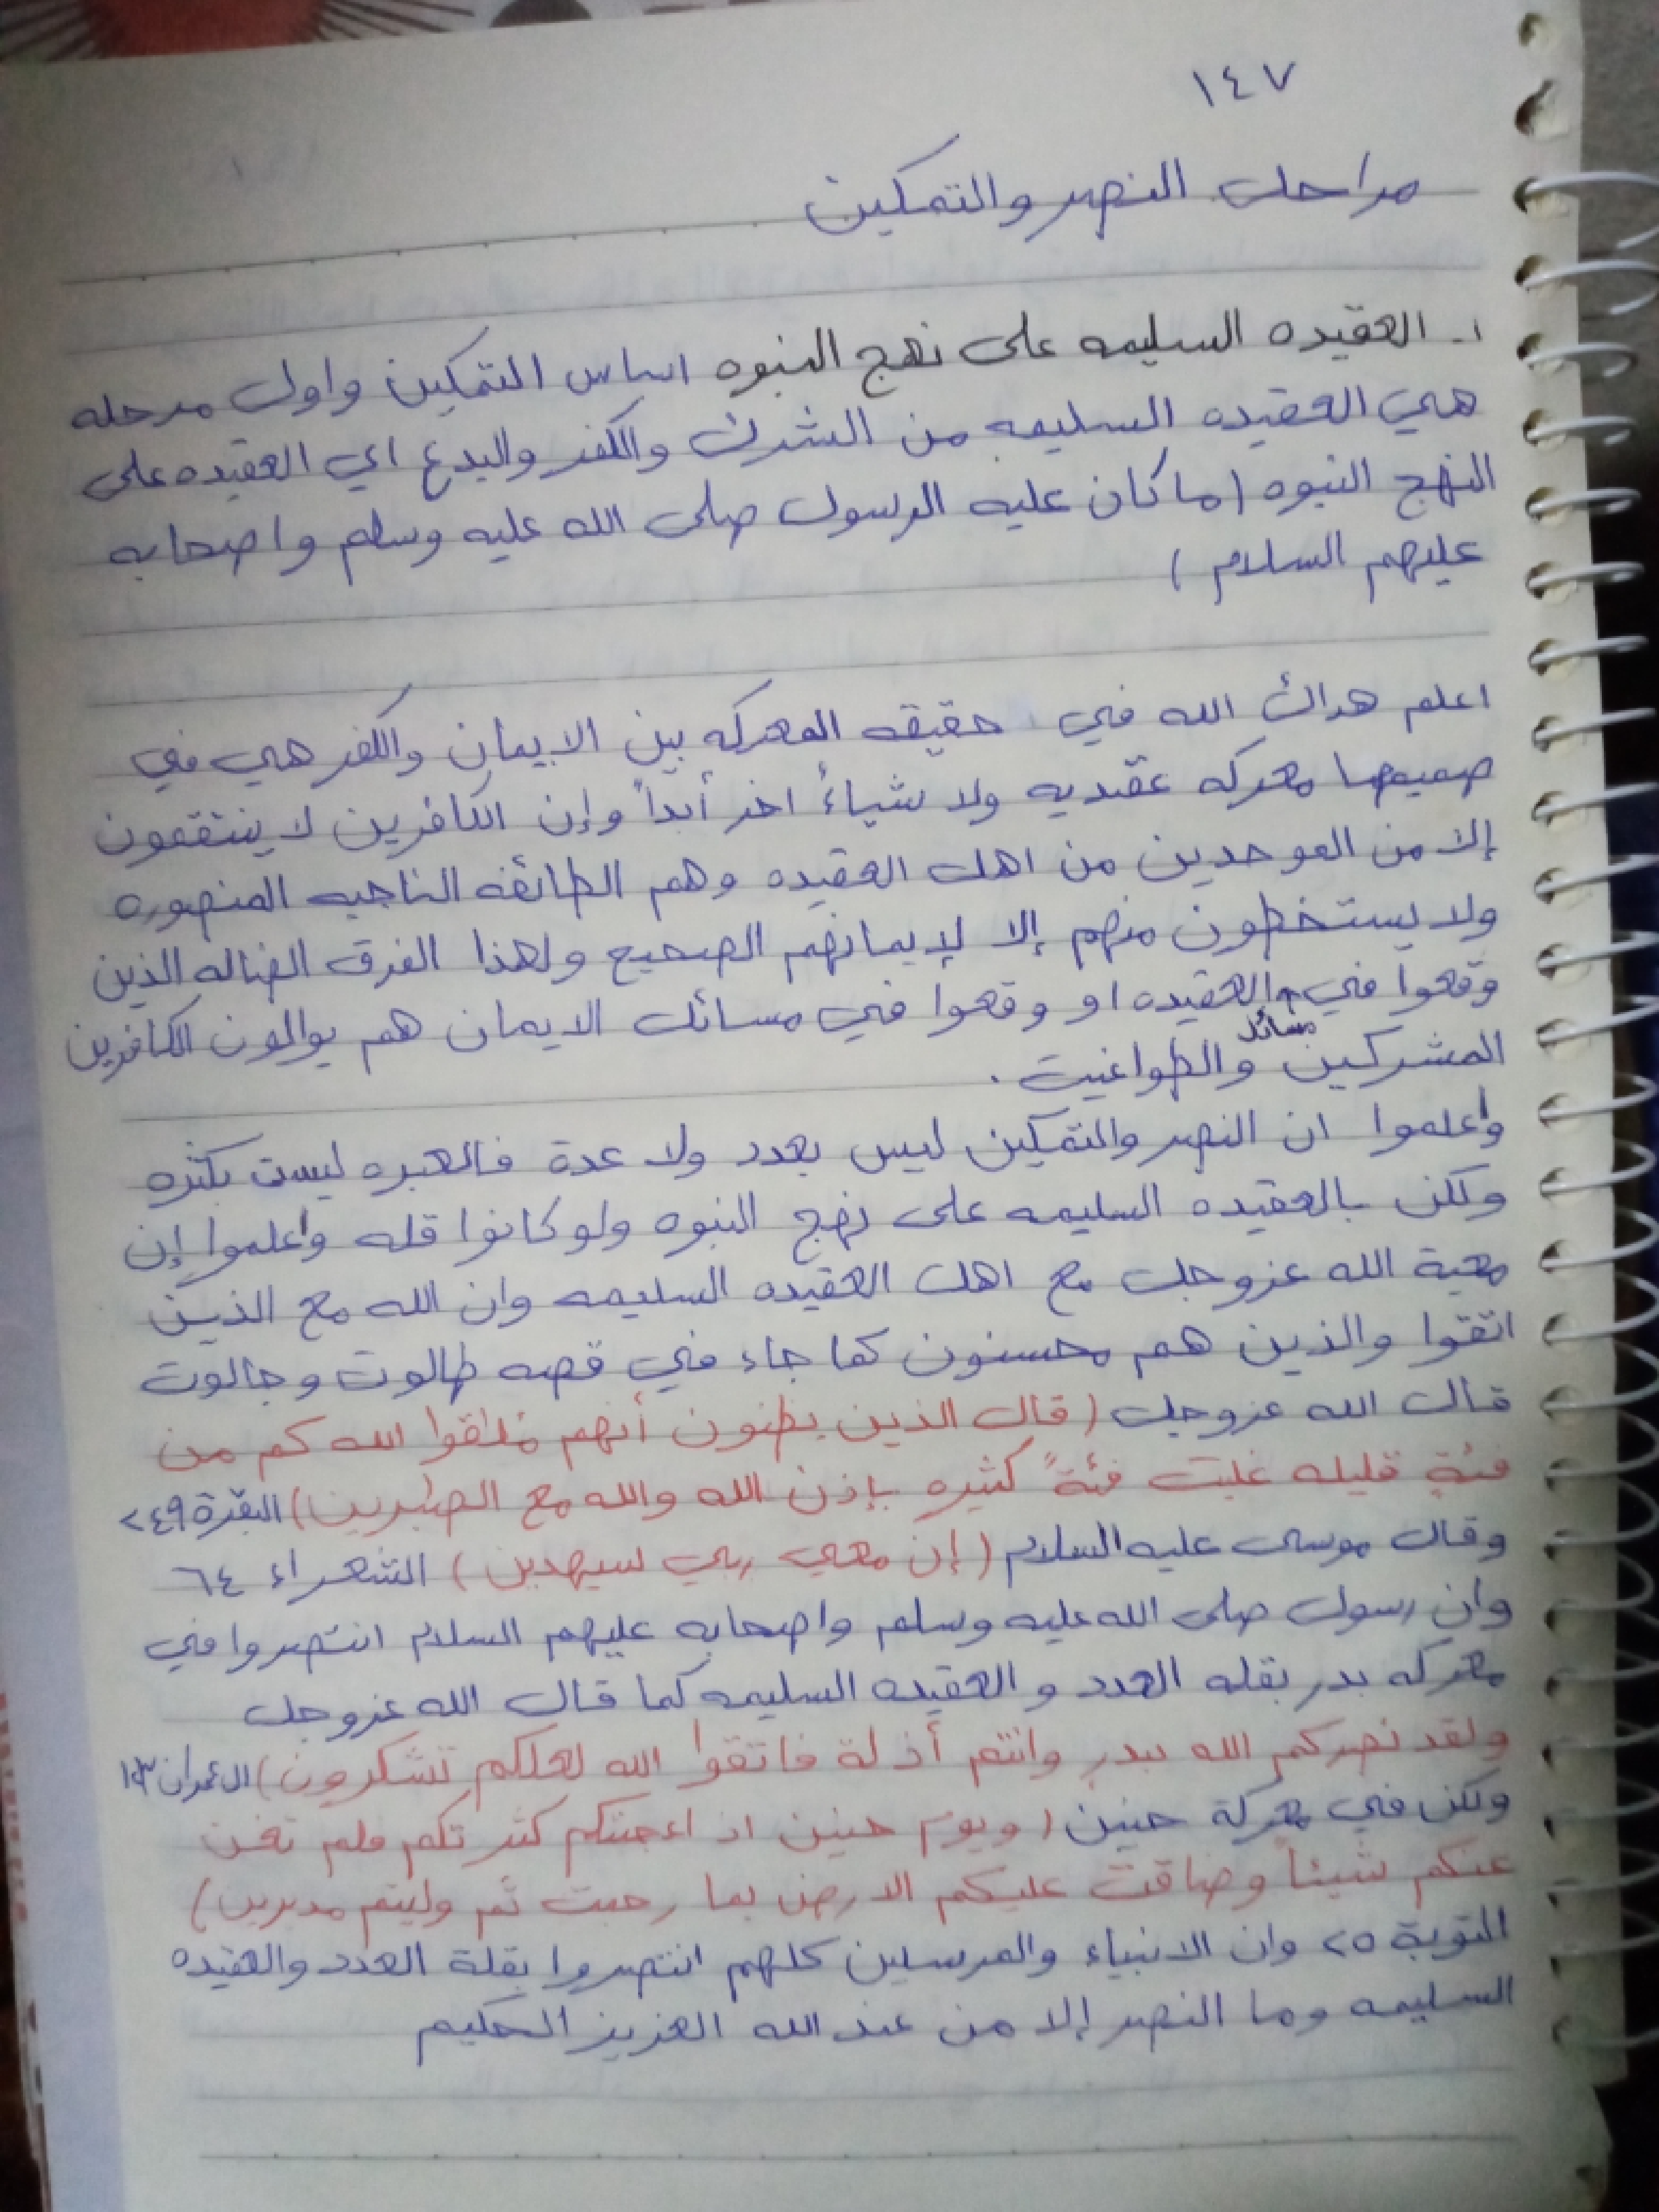 ١٤٧
مراحل النصر والتمكين
١- العقيده السليمه على نهج النبوه اساس التمكين واول مرحله
هي العقيده السليمه من الشرك والكفر والبدع اي العقيده على
النهج النبوه (ما كان عليه الرسول صلى الله عليه وسلم واصحابه
عليهم السلام)
اعلم هداك الله في حقيقه المعركه بين الايمان والكفر هي في
صميمها معركه عقديه ولا شياءً اخر أبداً وإن الكافرين لا ينتقمون
إلا من الموحدين من اهل العقيده وهم الطائفه الناجيه المنصوره
ولا يستخطون منهم إلا لإيمانهم الصحيح ولهذا الفرق الضاله الذين
وقعوا في مسائل العقيده او وقعوا في مسائل الايمان هم يوالون الكافرين
المشركين والطواغيت .
واعلموا ان النصر والتمكين ليس بعدد ولا عدة فالعبره ليست بكثره
ولكن بالعقيده السليمه على نهج النبوه ولو كانوا قله واعلموا إن
معية الله عزوجل مع اهل العقيده السليمه وان الله مع الذين
اتقوا والذين هم محسنون كما جاء في قصه طالوت وجالوت
قال الله عزوجل (قال الذين يظنون أنهم مُلٰقوا الله كم من
فئةٍ قليله غلبت فئةً كثيره بإذن الله والله مع الصٰبرين) البقرة ٢٤٩
وقال موسى عليه السلام (إن معي ربي سيهدين) الشعراء ٦٤
وان رسول صلى الله عليه وسلم واصحابه عليهم السلام انتصروا في
معركه بدر بقله العدد والعقيده السليمه كما قال الله عزوجل
ولقد نصركم الله ببدرٍ وانتم أذلة فاتقوا الله لعلكم تشكرون) ال عمران
ولكن في معركة حنين (ويوم حنين اذ اعجبتكم كثرتكم فلم تغن
عنكم شيئاً وضاقت عليكم الارض بما رحبت ثم وليتم مدبرين)
التوبة ٢٥ وان الانبياء والمرسلين كلهم انتصروا بقلة العدد والعقيده
السليمه وما النصر إلا من عند الله العزيز الحكيم